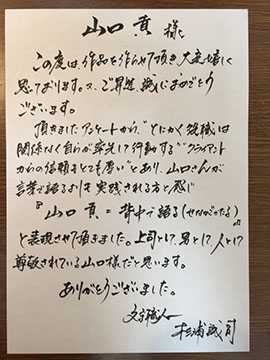 山口 貢 様
この度は、作品を作らせて頂き、大変嬉しく
思っております。又、ご昇進、誠におめでとう
ございます。
頂きましたアンケートから、"とにかく役職は
関係なく自らが率先して行動する""クライアント
からの信頼もとても厚い"とあり、山口さんが
言葉で語るよりも実践される方と感じ
『山口 貢 = 背中で語る(せなかでかたる)』
と表現させて頂きました。上司として、男として、人として
尊敬されている山口様だと思います。
ありがとうございました。
文字職人
杉浦誠司